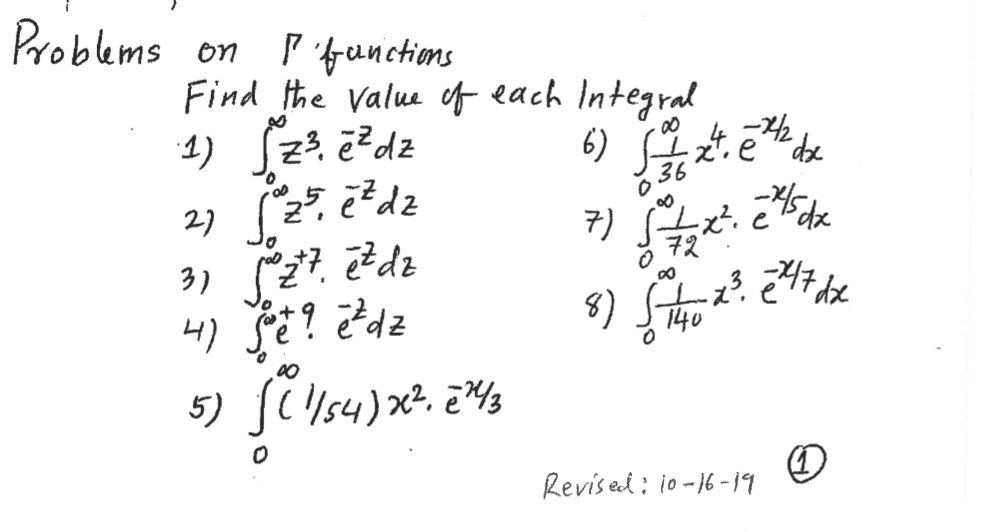 Problems on Γ functions
Find the value of each Integral
1) ∫₀^∞ z³. e^-z dz
2) ∫₀^∞ z⁵. e^-z dz
3) ∫₀^∞ z^+7. e^-z dz
4) ∫₀^∞ e^+9. e^-z dz
5) ∫₀^∞ (1/54) x². e^-x/3
6) ∫₀^∞ 1/36 x⁴. e^-x/2 dx
7) ∫₀^∞ 1/72 x². e^-x/5 dx
8) ∫₀^∞ 1/140 x³. e^-x/7 dx
Revised: 10-16-19 ①